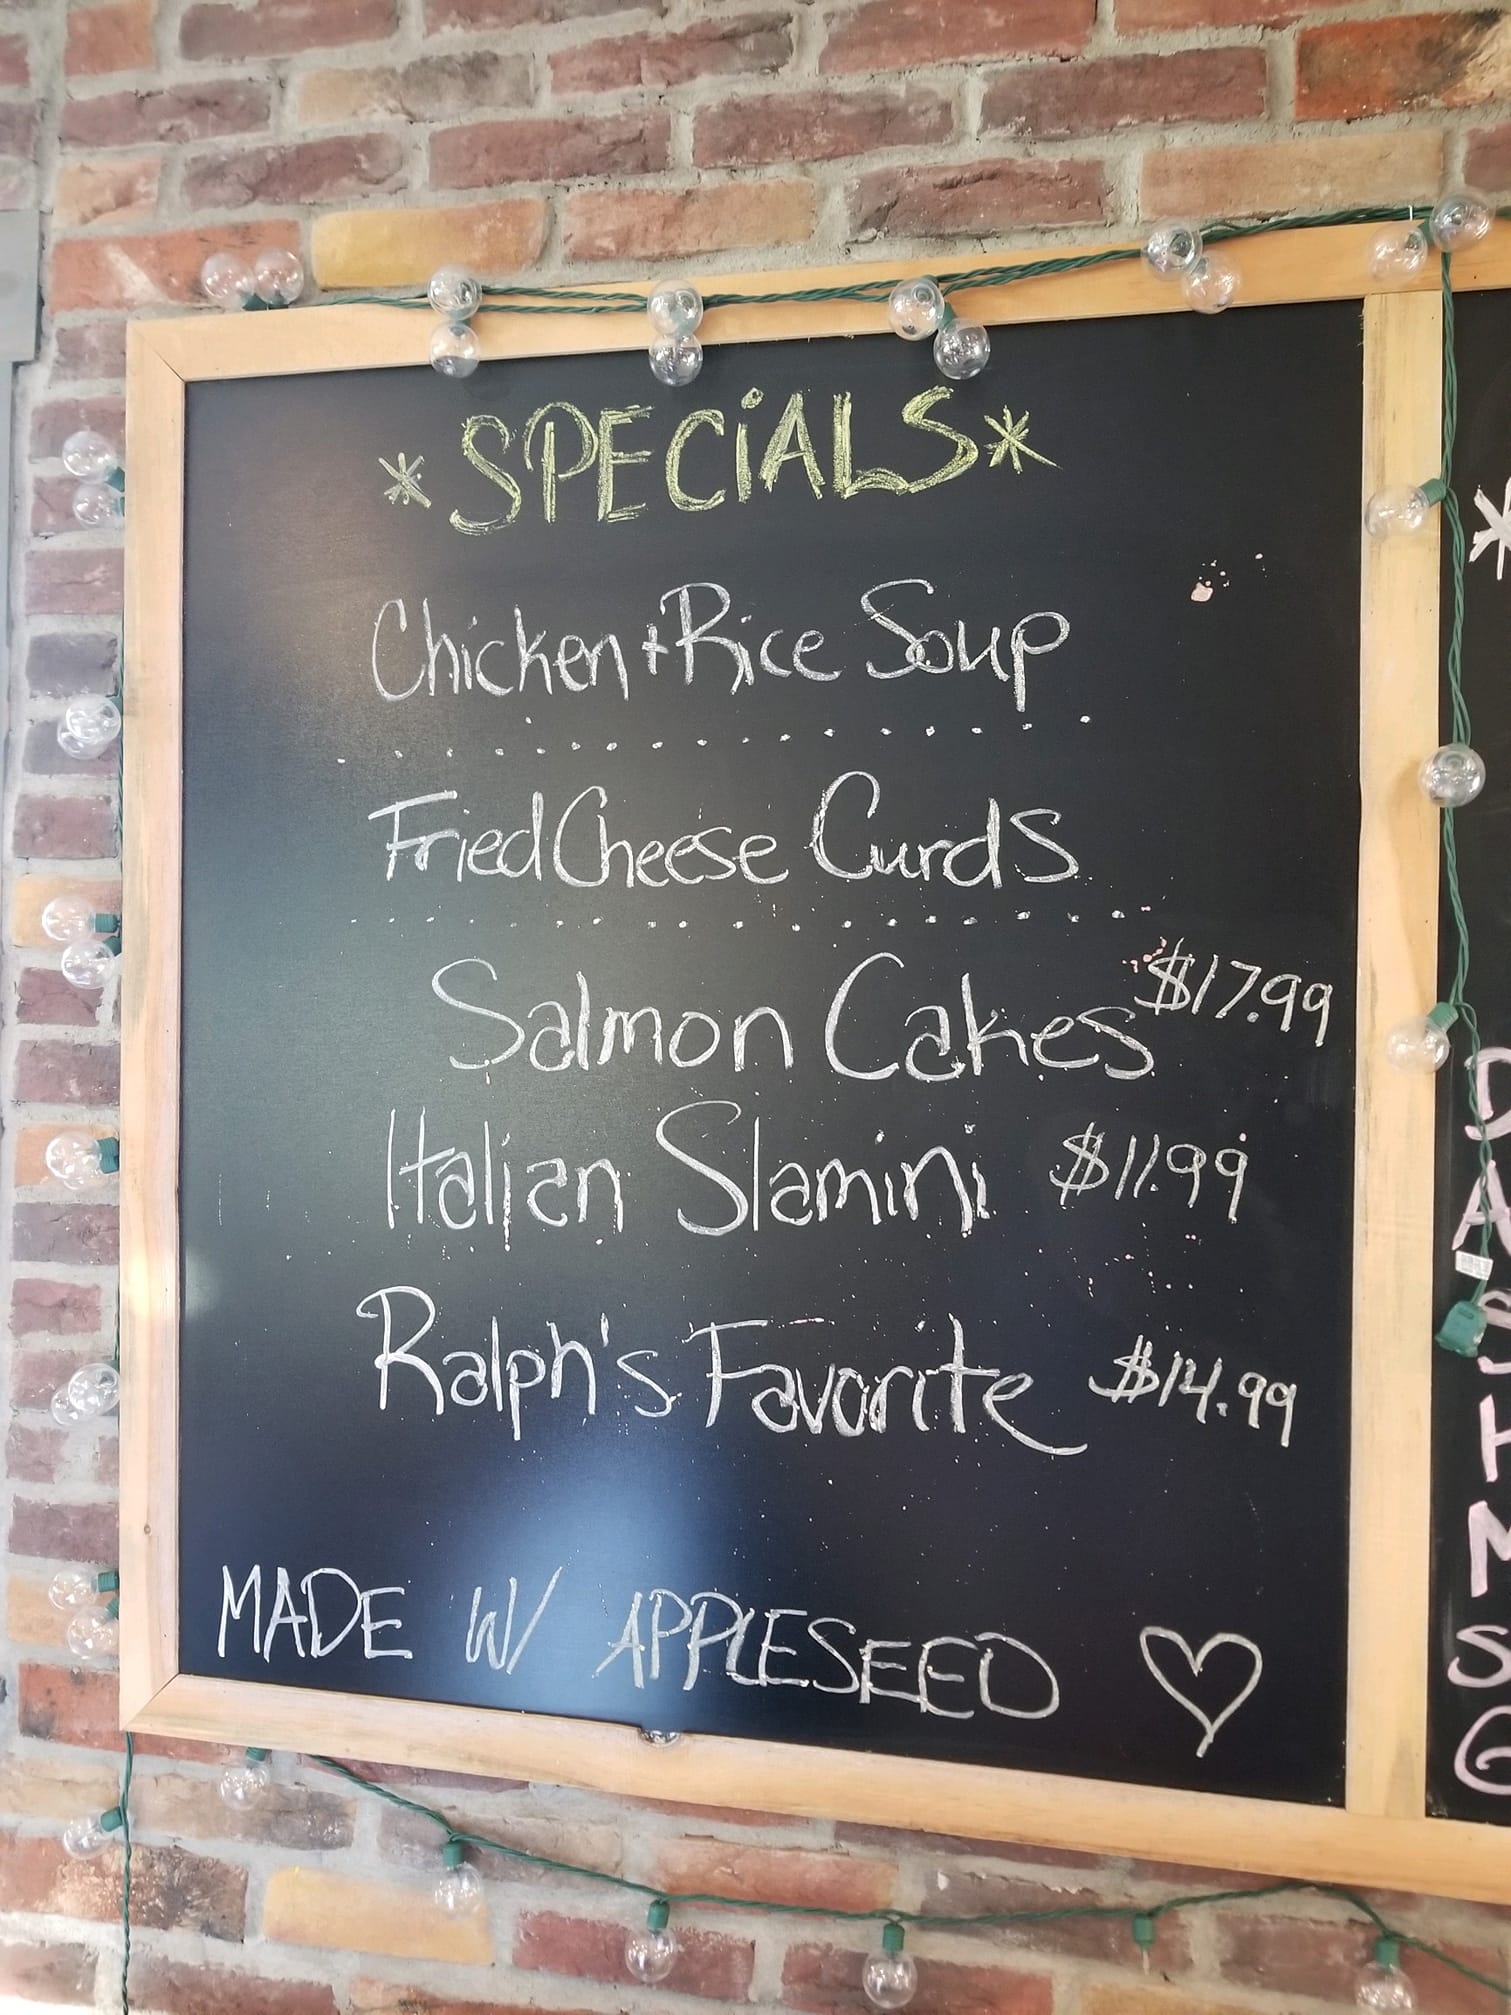 *SPECiALS*
Chicken + Rice Soup
Fried Cheese Curds
Salmon Cakes $17.99
Italian Slamini $11.99
Ralph's Favorite $14.99
MADE W/ APPLESEED ♡
*
D
A
S
H
M
S